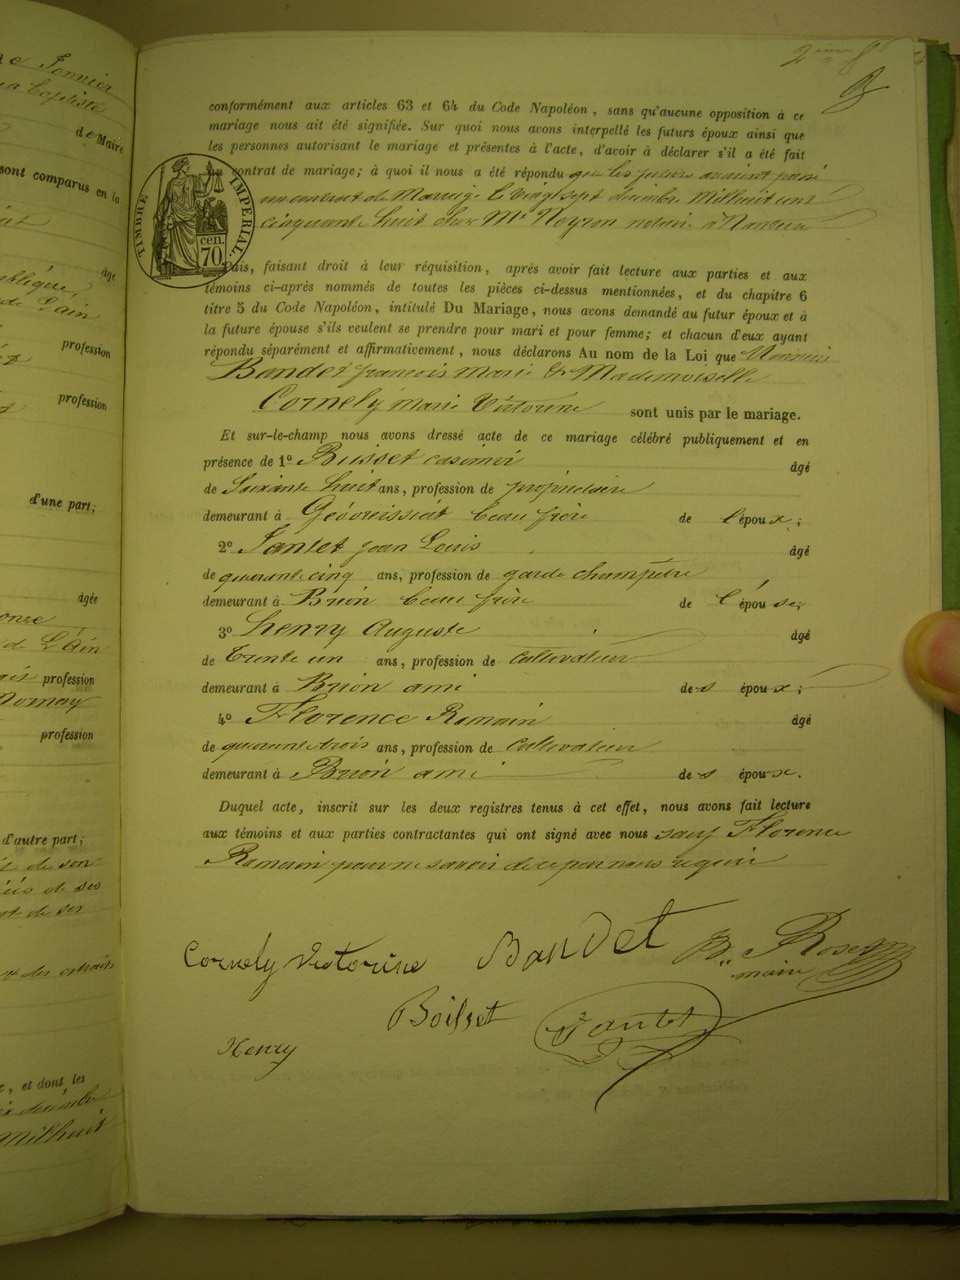 conformément aux articles 63 et 64 du Code Napoléon, sans qu'aucune opposition à ce
mariage nous ait été signifiée. Sur quoi nous avons interpellé les futurs époux ainsi que
les personnes autorisant le mariage et présentes à l'acte, d'avoir à déclarer s'il a été fait
contrat de mariage; à quoi il nous a été répondu que les futurs avaient passé
un contrat de Mariage le vingt sept décembre Mil huit cent
cinquante huit chez Me notaire à Nantua
TIMBRE IMPERIAL.
cen.
70
Puis, faisant droit à leur réquisition, après avoir fait lecture aux parties et aux
témoins ci-après nommés de toutes les pièces ci-dessus mentionnées, et du chapitre 6
titre 5 du Code Napoléon, intitulé Du Mariage, nous avons demandé au futur époux et à
la future épouse s'ils veulent se prendre pour mari et pour femme; et chacun d'eux ayant
répondu séparément et affirmativement, nous déclarons Au nom de la Loi que
Bandet françois Marie & Mademoiselle
Cornely Marie Victorine sont unis par le mariage.
Et sur-le-champ nous avons dressé acte de ce mariage célébré publiquement et en
présence de 1º casimir âgé
de Soixante huit ans, profession de propriétaire
demeurant à beau frère de l'époux;
2º jean Louis âgé
de quarante cinq ans, profession de garde champêtre
demeurant à Brion beau frère de l'épouse
3º henry Auguste âgé
de Trente un ans, profession de Cultivateur
demeurant à Brion ami des époux;
4º Florence Romain âgé
de quarante trois ans, profession de Cultivateur
demeurant à Brion ami des époux.
Duquel acte, inscrit sur les deux registres tenus à cet effet, nous avons fait lecture
aux témoins et aux parties contractantes qui ont signé avec nous sauf Florence
Romain pour ne savoir de ce par nous requis
Cornely Victorine Bandet
maire
Boisset
Henry
de Maire
sont comparus en la
âgé
profession
profession
d'une part;
âgée
de L'Ain
profession
profession
d'autre part;
et dont les